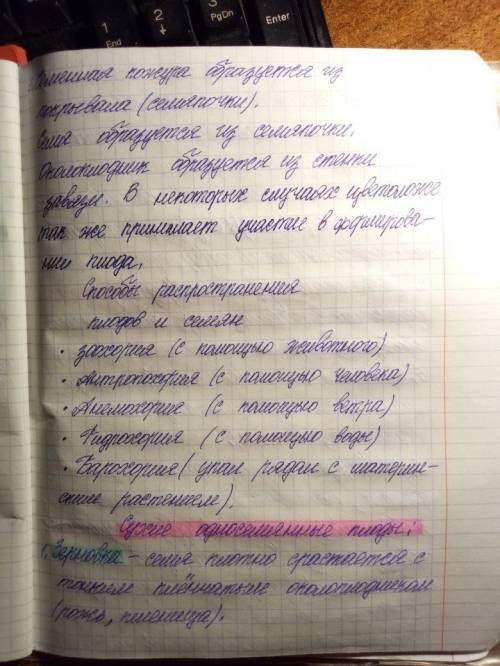 1
End
2
↓
3
PgDn
Enter
Семенная кожура образуется из
покрывала (семяпочки).
Семя образуется из семяпочки.
Околоплодник образуется из стенки
завязи. В некоторых случаях цветоложе
так же принимает участие в формирова-
нии плода.
Способы распространения
плодов и семян
• зоохория (с помощью животного)
• Антропохория (с помощью человека)
• Анемохория (с помощью ветра)
• Гидрохория (с помощью воды)
• Барохория (упал рядом с материн-
ским растением).
Сухие односемянные плоды:
1. Зерновка - семя плотно срастается с
тонким плёнчатым околоплодником
(рожь, пшеница).